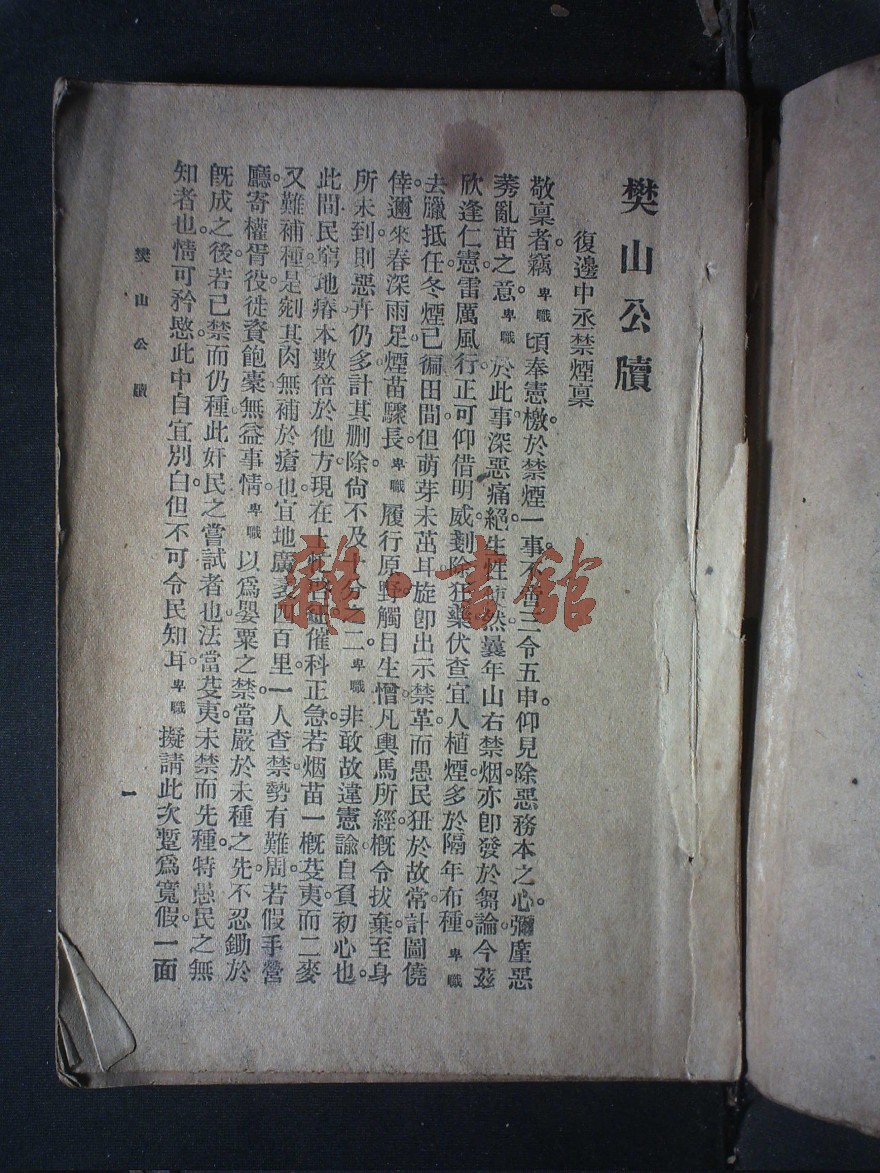 樊山公牘
復邊中丞禁煙稟
敬稟者。竊卑職頃奉憲檄於禁煙一事。不啻三令五申。仰見除惡務本之心。彌廑惡
莠亂苗之意。卑職於此事深惡痛絕。生性使然。曩年山右禁烟。亦卽發於芻論。今茲
欣逢仁憲。雷厲風行。正可仰借明威。剗除狂藥。伏查宜人植煙。多於隔年布種。卑職
去臘抵任。冬煙已徧田間。但萌芽未茁耳。旋卽出示禁革。而愚民狃於故常。計圖僥
倖。邇來春深雨足。煙苗驟長。卑職履行原野。觸目生憎。凡輿馬所經。概令拔棄。至身
所未到。則惡卉仍多。計其刪除。尙不及十分之二。卑職非敢故違憲諭。自負初心也。
此間民窮地瘠。本數倍於他方。現在上忙啓征。催科正急。若烟苗一概芟夷。而二麥
又難補種。是剜其肉無補於瘡也。宜地廣袤四百里。一人查禁。勢有難周。若假手營
廳。寄權胥役。徒資飽橐。無益事情。卑職以爲嬰粟之禁。當嚴於未種之先。不忍鋤於
旣成之後。若已禁而仍種。此奸民之嘗試者也。法當芟夷。未禁而先種。特愚民之無
知者也。情可矜愍。此中自宜別白。但不可令民知耳。卑職擬請此次蹔爲寬假。一面
樊山公牘
一
雜·書館